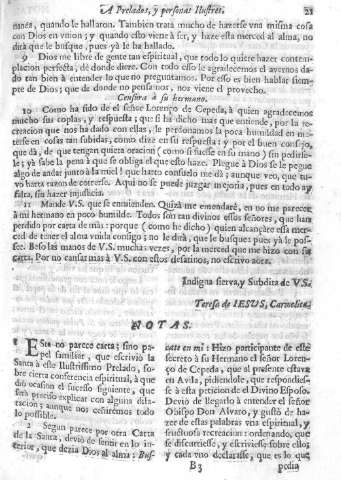 A Prelados, y personas Ilustres. 21
nanea, quando le hallaron. Tambien trata mucho de hazerse vna misma cosa
con Dios en vnion; y quando esto viene à ser, y haze esta merced al alma, no
dirà que le busque, pues yà le ha hallado.
9 Dios me libre de gente tan espiritual, que todo lo quiere hazer contem-
placion perfecta, dè donde diere. Con todo esso le agradecemos el avernos da-
do tan bien à entender lo que no preguntamos. Por esso es bien hablar siem-
pre de Dios; que de donde no pensamos, nos viene el provecho.
Censura à su hermano.
10 Como ha sido de el señor Lorenço de Cepeda, à quien agradecemos
mucho sus coplas, y respuesta; que si ha dicho mas que entiende, por la re-
creacion que nos ha dado con ellas, le perdonamos la poca humildad en me-
terse en cosas tan subidas, como dize en su respuesta: y por el buen consejo,
que dà, de que tengan quieta oracion (como si fuesse en su mano) sin pedirse-
le; yà sabe la pena à que se obliga el que esto haze. Plegue à Dios se le pegue
algo de andar junto à la miel! que harto consuelo me dà; aunque veo, que tu-
vo harta razon de correrse. Aqui no se puede juzgar mejoria, pues en todo ay
falta, sin hazer injusticia.
11 Mande V.S. que se enmienden. Quizà me emendarè, en no me parecer
à mi hermano en poco humilde. Todos son tan divinos essos señores, que han
perdido por carta de mas: porque (como he dicho) quien alcançare essa mer-
ced de tener el alma vnida consigo; no le dirà, que le busque; pues yà le pos-
see. Beso las manos de V.S. muchas vezes, por la merced que me hizo con su
carta. Por no cansar mas à V.S. con estos desatinos, no escrivo aora.
Indigna sierva, y Subdita de V.S.
Teresa de IESVS, Carmelita.
NOTAS.
1 Esta no parece carta; sino pa-
pel familiar, que escriviò la
Santa à este Ilustrissimo Prelado, so-
bre cierta conferencia espiritual, à que
diò ocasion el sucesso siguiente, que
serà preciso explicar con alguna dila-
tacion; aunque nos ceñirèmos todo
lo possible.
2 Segun parece por otra Carta
de la Santa, deviò de sentir en lo in-
terior, que dezia Dios al alma: Bus-
cate en mi: Hizo participante de este
secreto à su Hermano el señor Loren-
ço de Cepeda, que al presente estava
en Avila, pidiendole, que respondies-
se à esta peticion de el Divino Esposo.
Deviò de llegarlo à entender el señor
Obispo Don Alvaro, y gustò de ha-
zer de estas palabras vna espiritual, y
fructuosa recreacion: ordenando, que
se discurriesse, y escriviesse sobre ello;
y cada vno declarasse, que es lo que
B 3 pedia